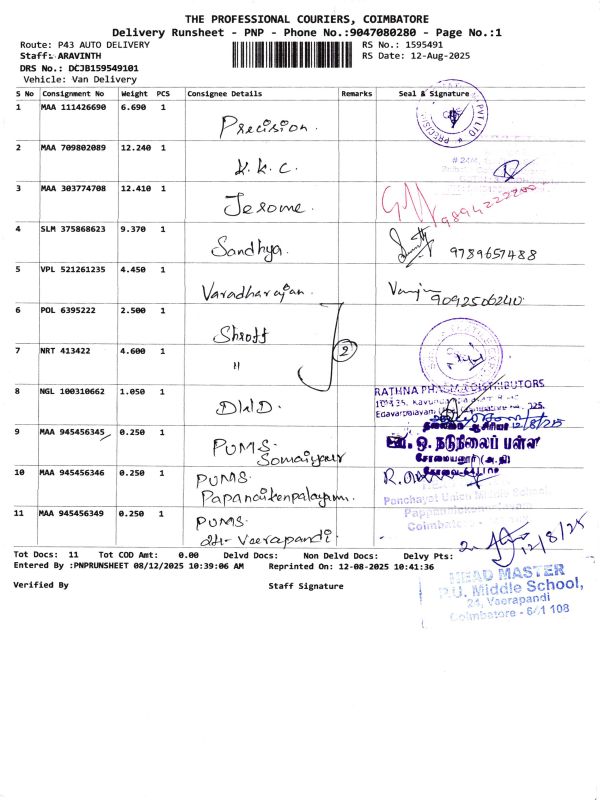 THE PROFESSIONAL COURIERS, COIMBATORE
Delivery Runsheet - PNP - Phone No.:9047080280 - Page No.:1
Route: P43 AUTO DELIVERY RS No.: 1595491
Staff: ARAVINTH RS Date: 12-Aug-2025
DRS No.: DCJB159549101
Vehicle: Van Delivery
S No Consignment No Weight PCS Consignee Details Remarks Seal & Signature
1 MAA 111426690 6.690 1 Precision.
2 MAA 709802089 12.240 1 K.K.C.
3 MAA 303774708 12.410 1 Jerome.
4 SLM 375868623 9.370 1 Sandhya. 9789657488
5 VPL 521261235 4.450 1 Varadharajan. 9092506240
6 POL 6395222 2.500 1 Shroff
7 NRT 413422 4.600 1 " 2
RATHNA PHARMA DISTRIBUTORS
8 NGL 100310662 1.050 1 DWD.
12/8/25
9 MAA 945456345 0.250 1 PUMS. Somaiyanur
10 MAA 945456346 0.250 1 PUMS. Papanaikenpalayam.
Panchayat Union Middle School,
Coimbatore
11 MAA 945456349 0.250 1 PUMS. Veerapandi
12/8/25
Tot Docs: 11 Tot COD Amt: 0.00 Delvd Docs: Non Delvd Docs: Delvy Pts:
Entered By :PNPRUNSHEET 08/12/2025 10:39:06 AM Reprinted On: 12-08-2025 10:41:36
Verified By Staff Signature
HEAD MASTER
P.U. Middle School,
24, Veerapandi
Coimbatore - 641 108